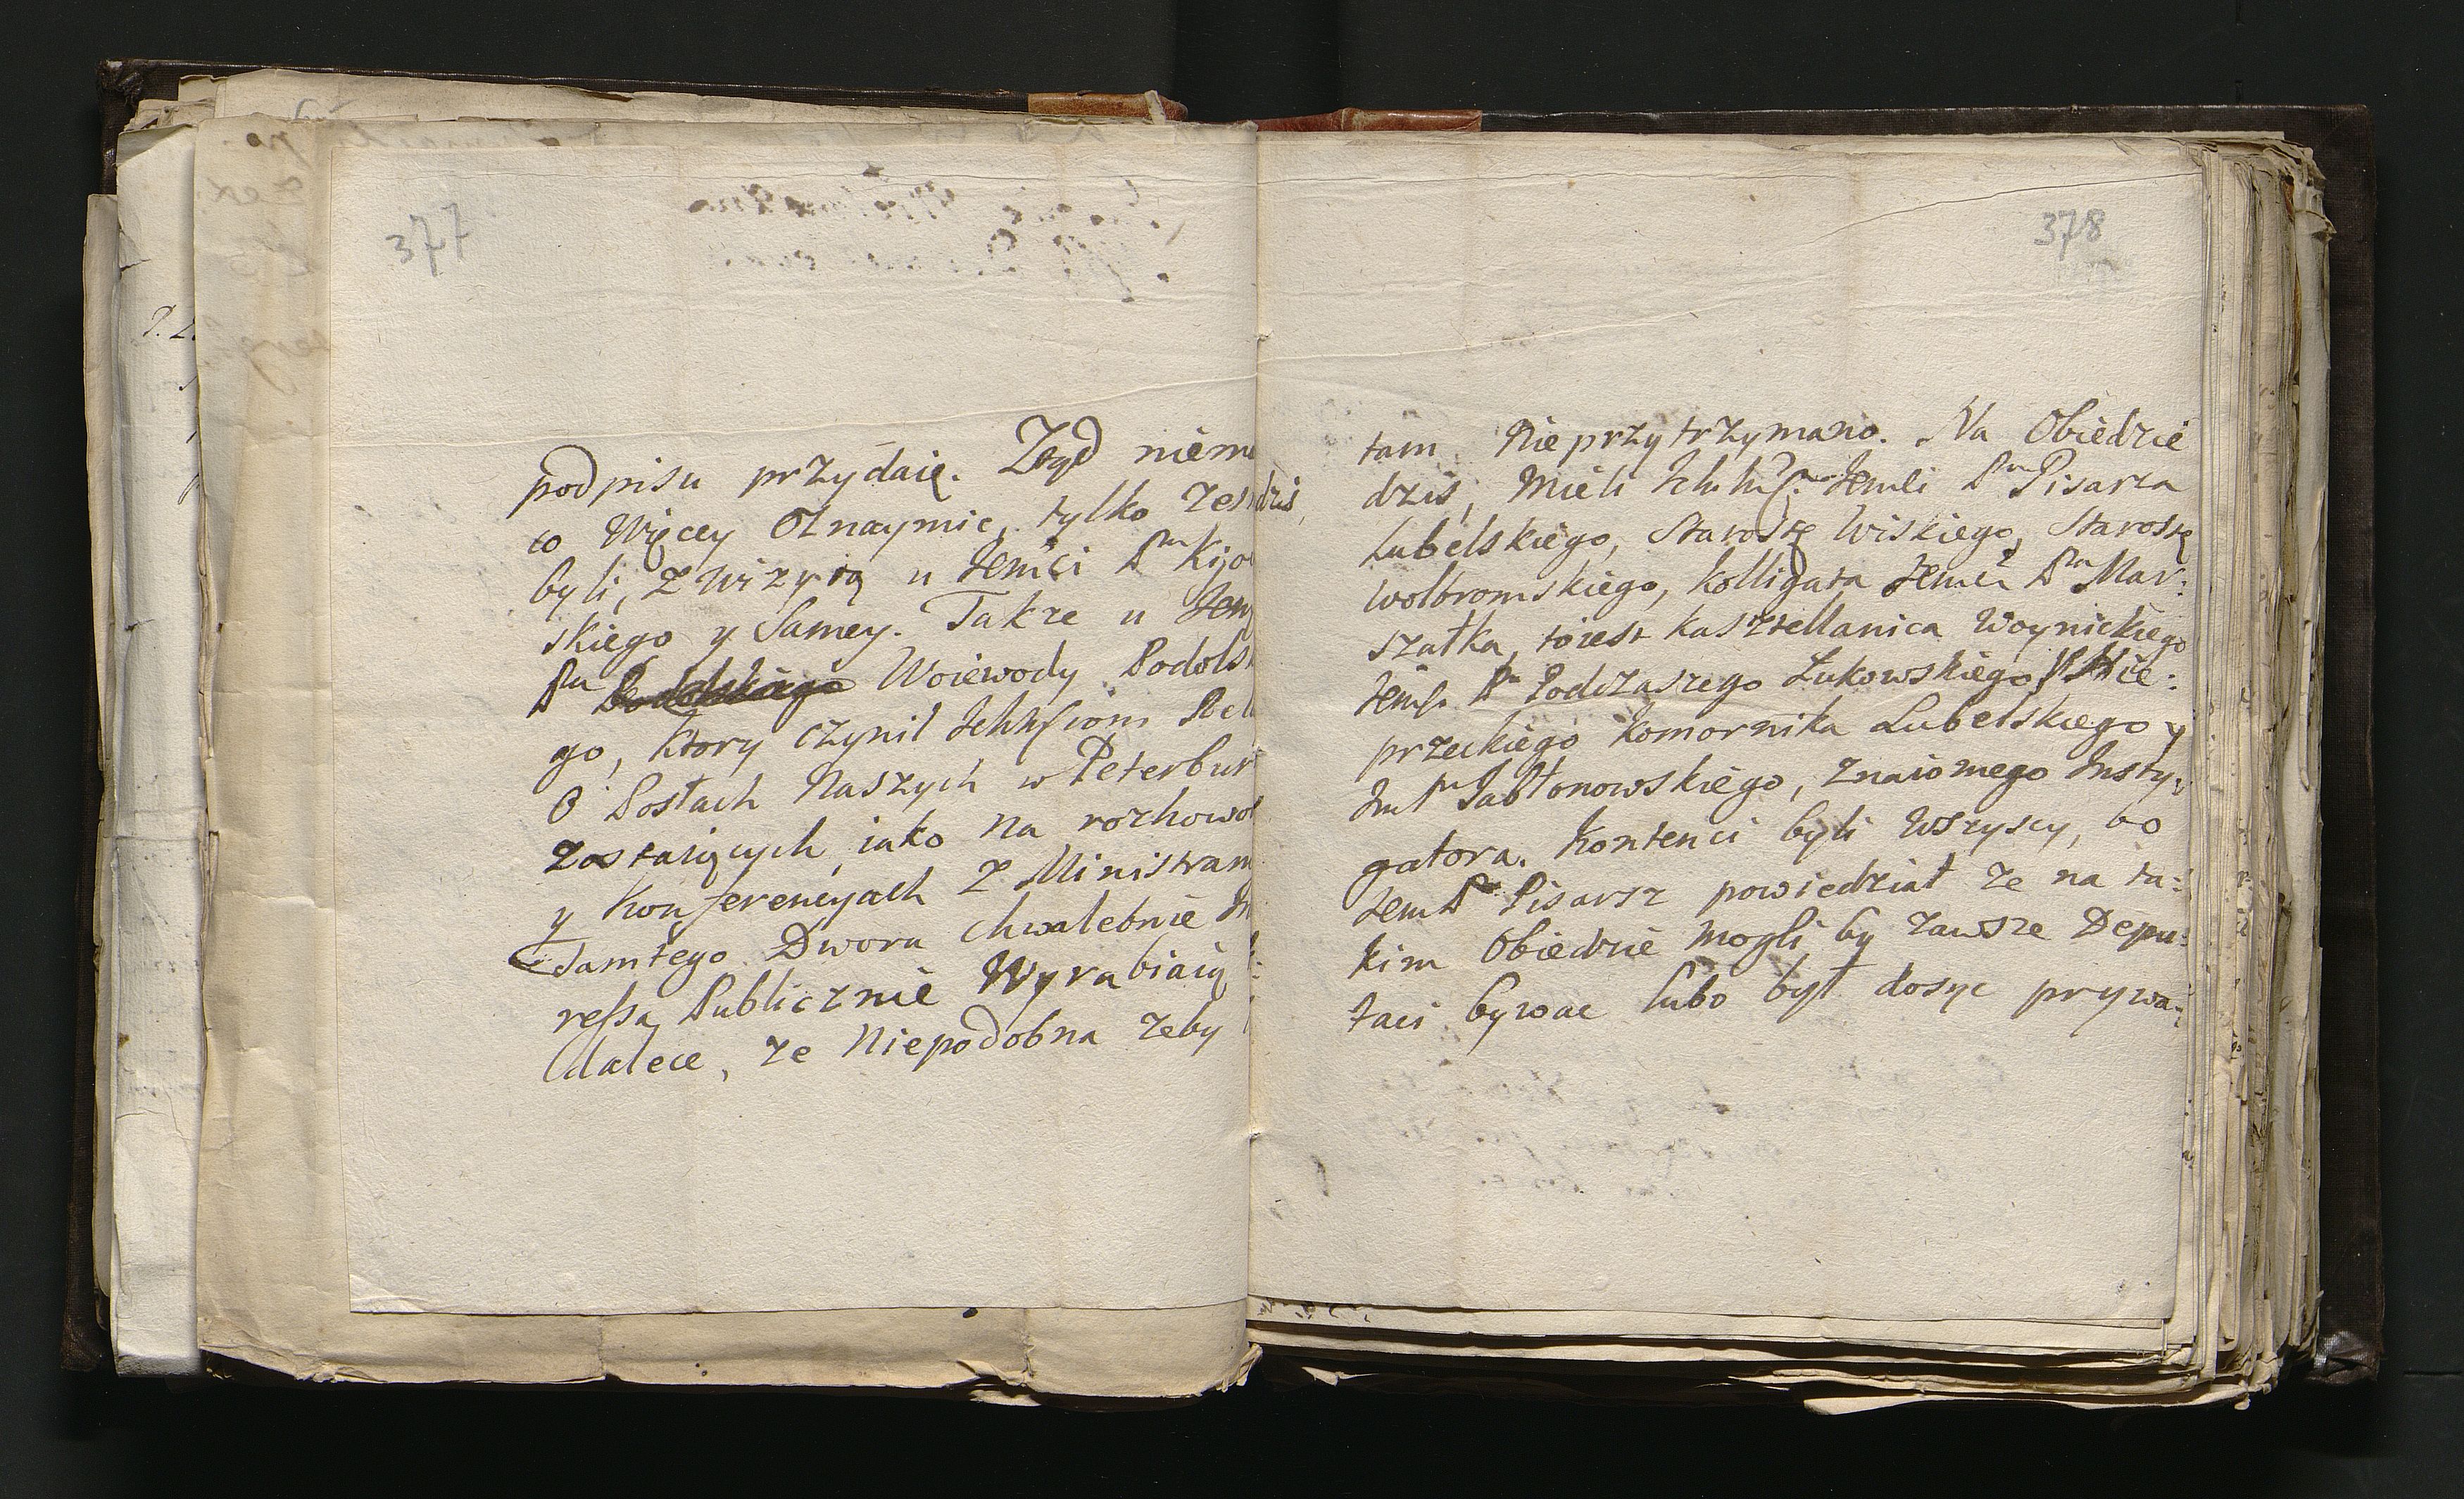 377
podpisu przydaię. Ztąd niem
co Więcey Oznaymic, tylko zes dziś,
byli, z wizytą u Jemci Pna Kijo
skiego y Samey. Takze u Jem
Pna Podolskiego Woiewody Podols
go, ktory czynił Ichmsciom Rel
O Posłach Naszych w Peterbur
zostaiących, iako na rozhowo
y Konferencyach z Ministram
Tamtego Dworu chwalebnie In
ressa Publicznie Wyrabiaią
dalece, ze Niepodobna zeby
378
tam Nieprzytrzymano. Na Obiedzie
dzis, Mieli Jemci Pna Pisarza
Lubelskiego, Starostę Wiskiego, Starostę
Wolbromskiego, kolligata Jemci Pna Mar:
szałka, toiest Kasztellanica Woynickiego
Pna Podczaszego Łukowskiego
przeckiego Komornika Lubelskiego y
Jabłonowskiego, znaiomego Insty:
gatora. Kontenci byli Wszyscy, bo
Jem P Pisarz powiedział ze na ta:
kim Obiedzie mogli by zawsze Depu:
taci bywac lubo był dosyc prywa: